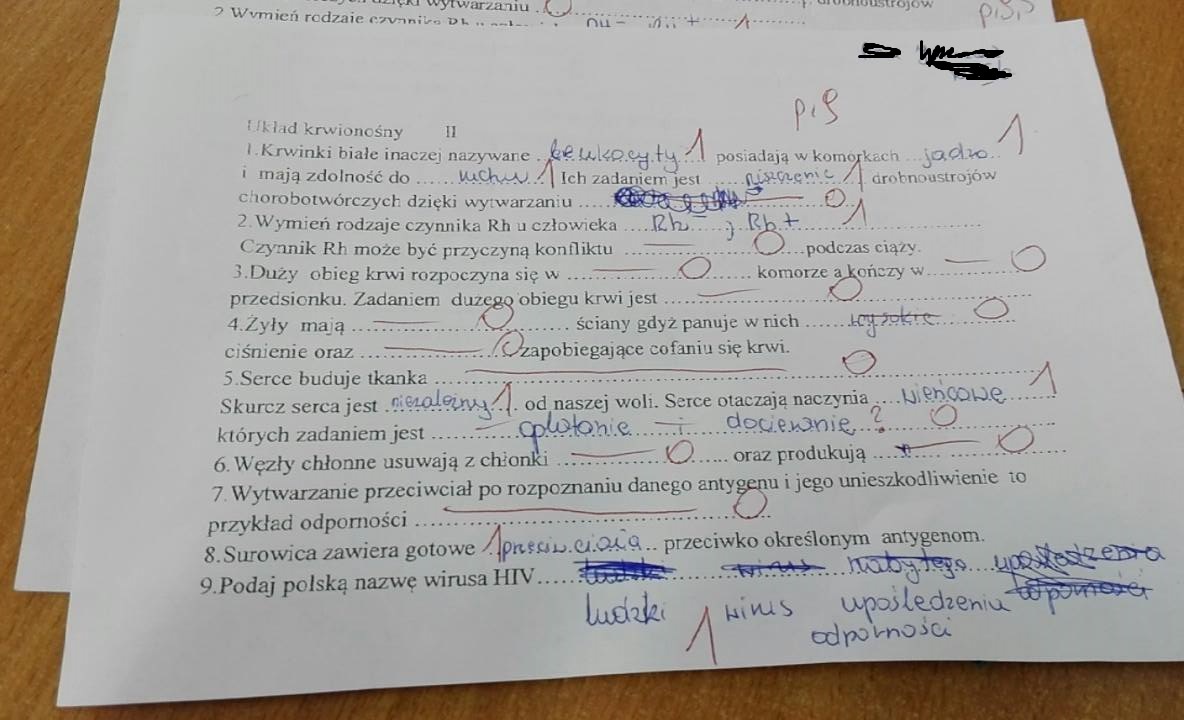 wytwarzaniu
drobnoustrojów
2 Wymień rodzaje czynnika Rh u 1
Układ krwionośny II
1.Krwinki białe inaczej nazywane leukocyty 1 posiadają w komórkach jądro 1
i mają zdolność do ruchu 1 Ich zadaniem jest niszczenie 1 drobnoustrojów
chorobotwórczych dzięki wytwarzaniu
2.Wymień rodzaje czynnika Rh u człowieka Rh - , Rh + 1
Czynnik Rh może być przyczyną konfliktu podczas ciąży.
3.Duży obieg krwi rozpoczyna się w komorze a kończy w
przedsionku. Zadaniem dużego obiegu krwi jest
4.Żyły mają ściany gdyż panuje w nich wysokie
ciśnienie oraz zapobiegające cofaniu się krwi.
5.Serce buduje tkanka
Skurcz serca jest niezależny 1 od naszej woli. Serce otaczają naczynia wieńcowe 1
których zadaniem jest oplatanie i ?
6.Węzły chłonne usuwają z chłonki oraz produkują
7.Wytwarzanie przeciwciał po rozpoznaniu danego antygenu i jego unieszkodliwienie to
przykład odporności
8.Surowica zawiera gotowe 1 przeciwciała przeciwko określonym antygenom.
9.Podaj polską nazwę wirusa HIV ludzki wirus nabytego upośledzenia
ludzki 1 wirus upośledzenia
odporności